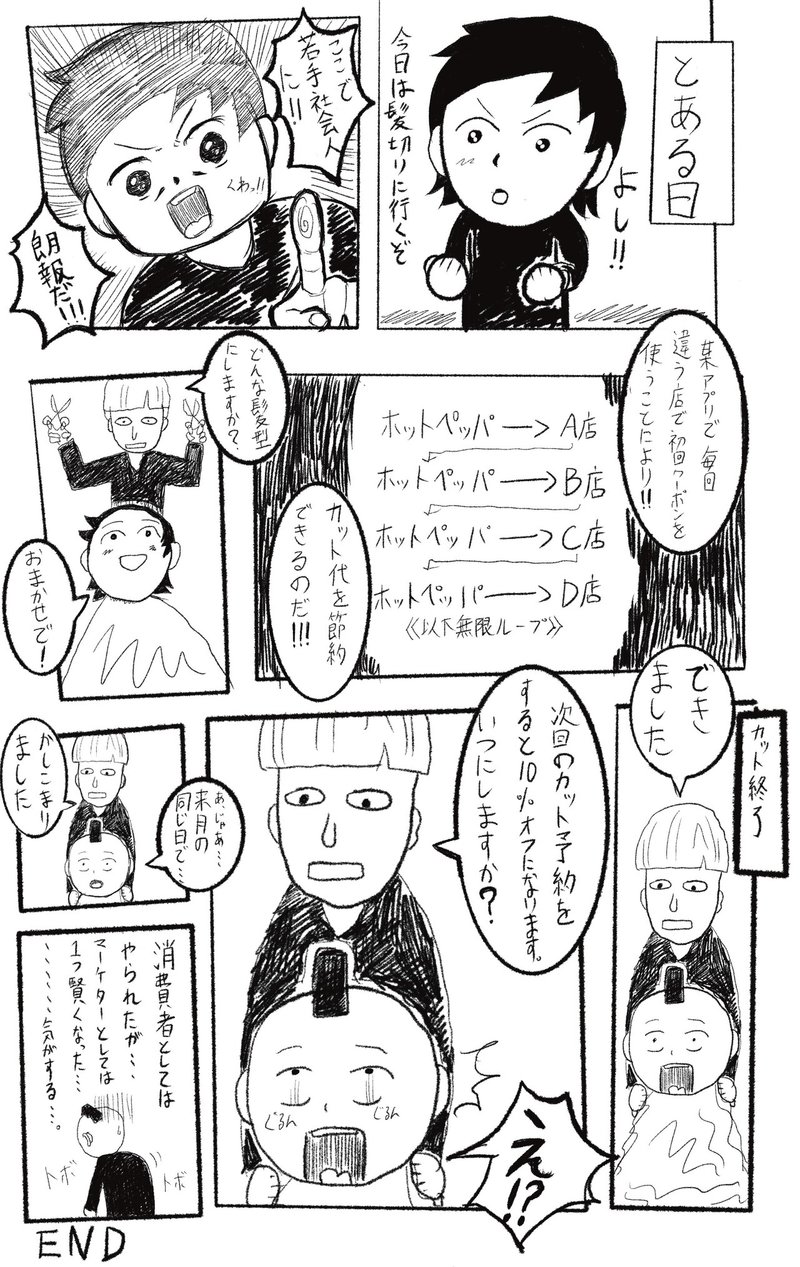 とある日
よし!!
今日は髪切りに行くぞ
ここで
若手社会人
に!!
くわっ!!
朗報だ!!!
某アプリで毎回
違う店で初回クーポンを
使うことにより!!
ホットペッパー→A店
ホットペッパー→B店
ホットペッパー→C店
ホットペッパー→D店
《以下無限ループ》
カット代を節約
できるのだ!!!
どんな髪型
にしますか?
おまかせで!
カット終了
でき
ました
次回のカット予約を
すると10%オフになります。
いつにしますか?
え!?
ぐるん
ぐるん
あ、じゃあ…
来月の
同じ日で…
かしこまり
ました
消費者としては
やられたが…
マーケターとしては
1つ賢くなった…
……気がする…。
トボ
トボ
END